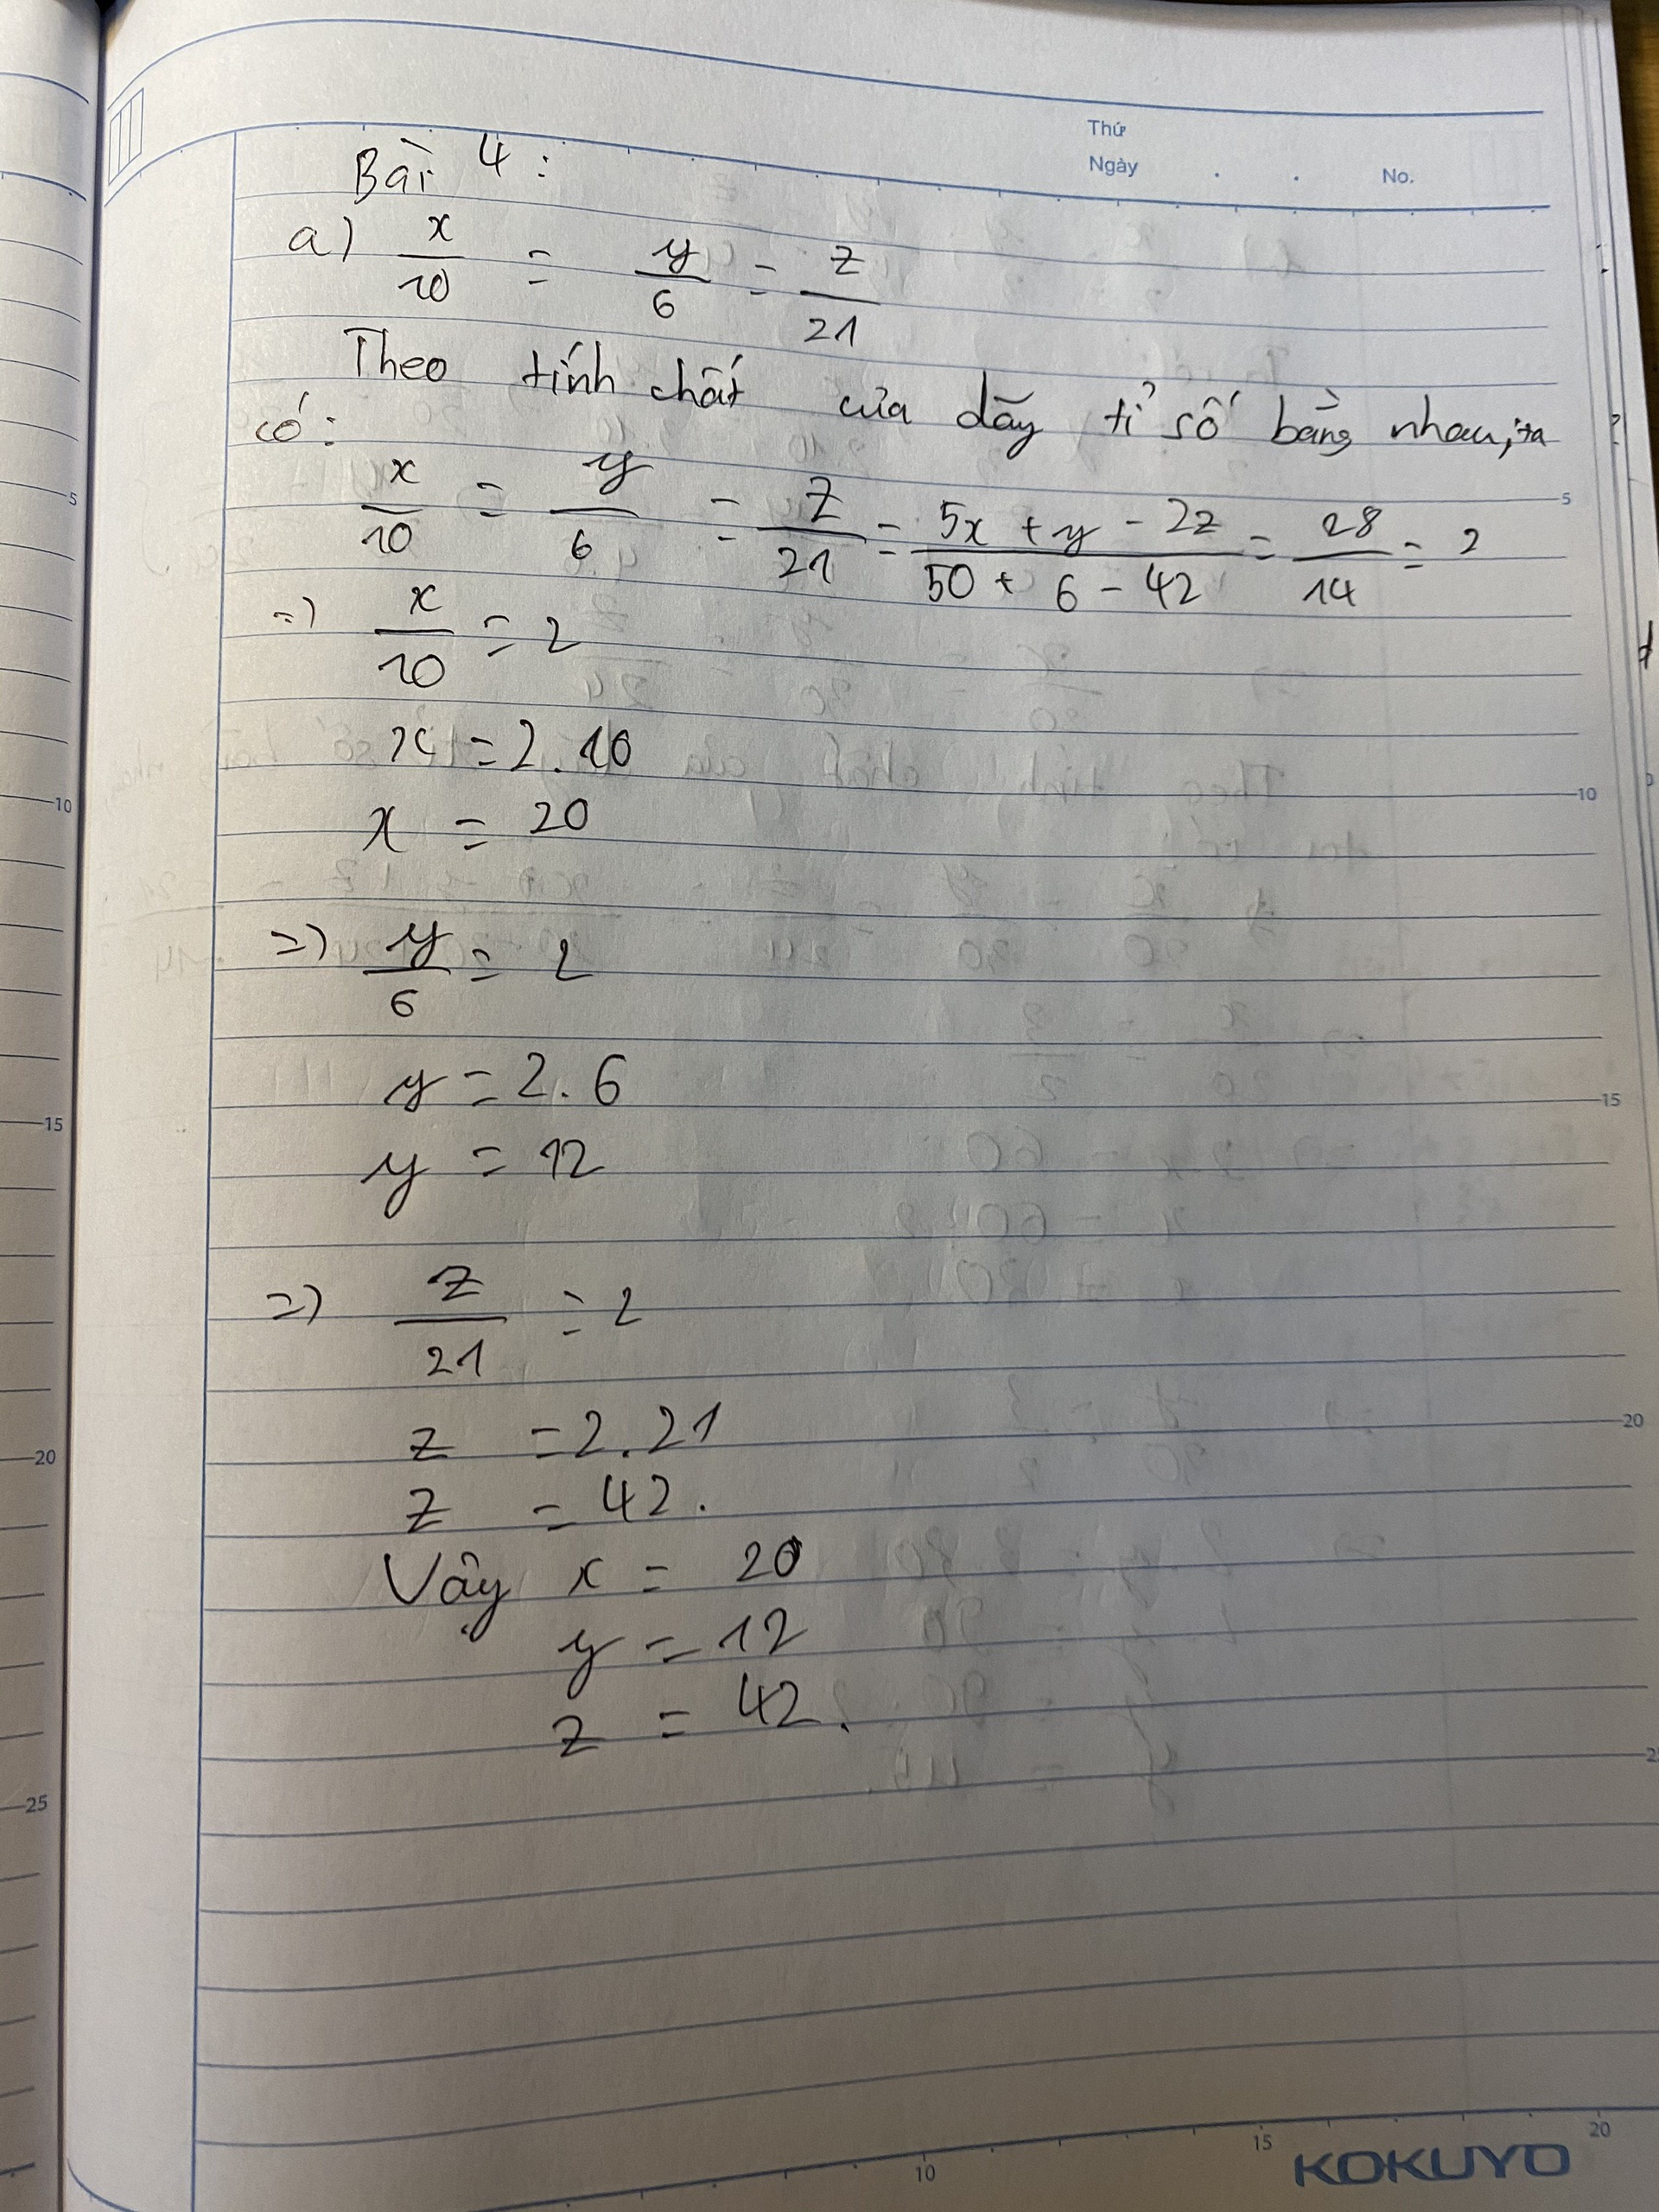 Thứ
Ngày . . No.
Bài 4:
a) x/10 = y/6 = z/21
Theo tính chất của dãy tỉ số bằng nhau, ta
có:
x/10 = y/6 = z/21 = (5x + y - 2z)/(50 + 6 - 42) = 28/14 = 2
=> x/10 = 2
x = 2.10
x = 20
=> y/6 = 2
y = 2.6
y = 12
=> z/21 = 2
z = 2.21
z = 42.
Vậy x = 20
y = 12
z = 42.
5
10
15
20
25
5
10
15
20
10
15
20
KOKUYO